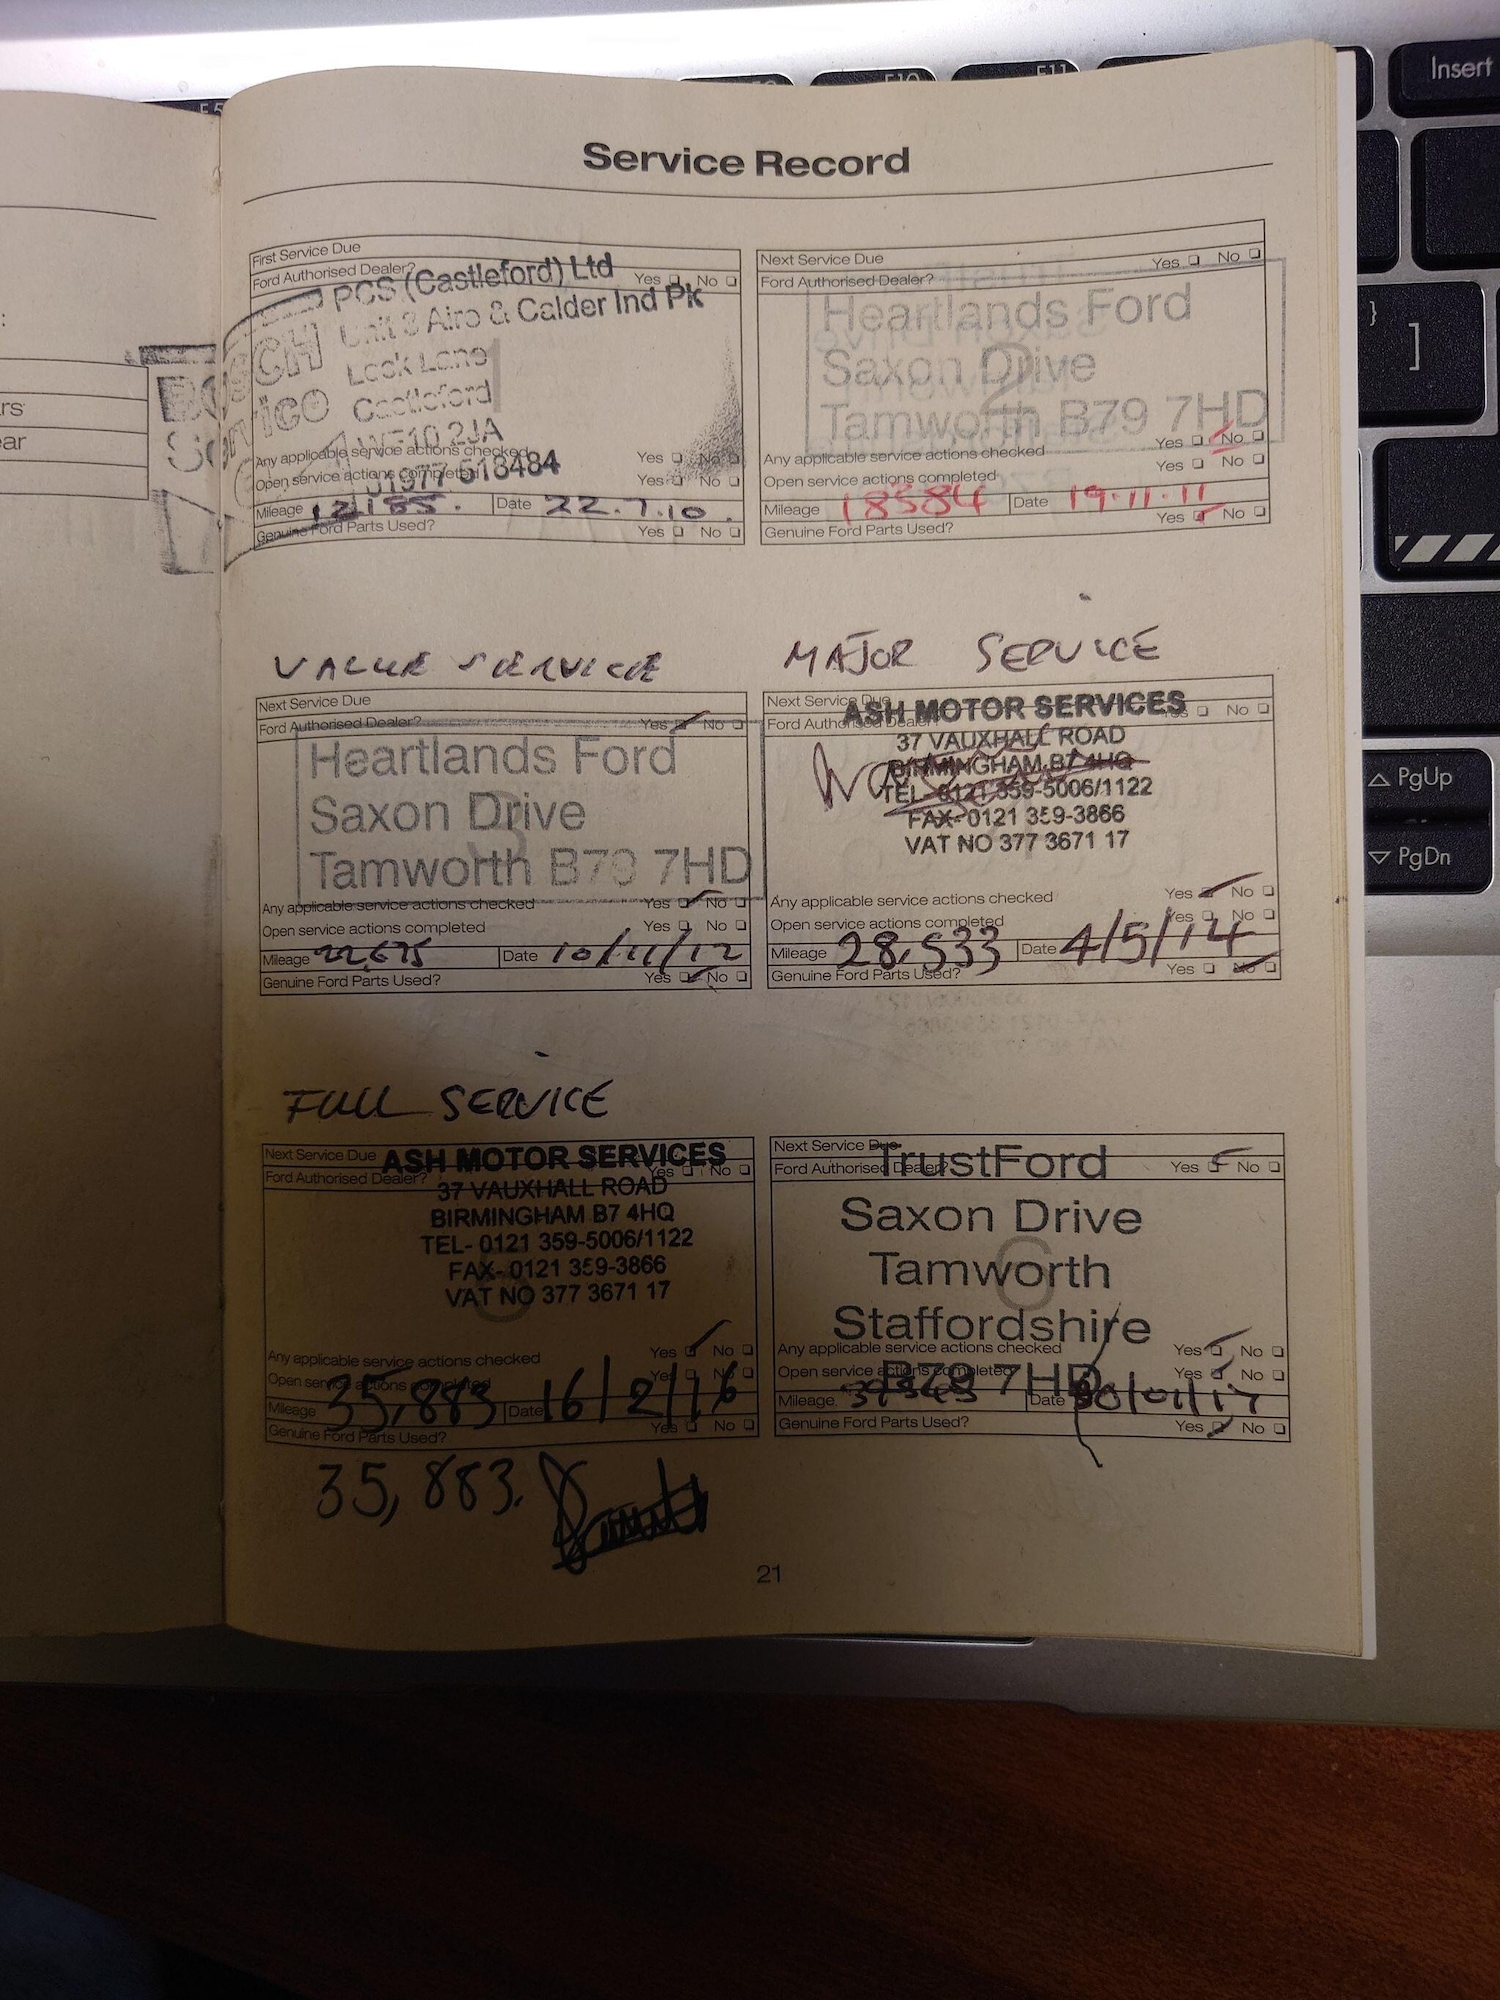 F5
F10
F11
Insert
}
]
PgUp
PgDn
:
rs
ear
Service Record
First Service Due
Ford Authorised Dealer? Yes No
PCS (Castleford) Ltd
Unit 3 Aire & Calder Ind Pk
Lock Lane
Castleford
WF10 2JA
01977 518484
BOSCH
Service
1
Any applicable service actions checked Yes No
Open service actions completed Yes No
Mileage 12,185. Date 22.7.10.
Genuine Ford Parts Used? Yes No
Next Service Due
Ford Authorised Dealer? Yes No
Heartlands Ford
Saxon Drive
Tamworth B79 7HD
2
Any applicable service actions checked Yes No
Open service actions completed Yes No
Mileage 18584 Date 19.11.11
Genuine Ford Parts Used? Yes No
VALUE SERVICE
Next Service Due
Ford Authorised Dealer? Yes No
Heartlands Ford
Saxon Drive
Tamworth B79 7HD
3
Any applicable service actions checked Yes No
Open service actions completed Yes No
Mileage 22,675 Date 10/11/12
Genuine Ford Parts Used? Yes No
MAJOR SERVICE
Next Service Due
Ford Authorised Dealer? Yes No
ASH MOTOR SERVICES
37 VAUXHALL ROAD
BIRMINGHAM B7 4HQ
TEL- 0121 359-5006/1122
FAX- 0121 359-3866
VAT NO 377 3671 17
Any applicable service actions checked Yes No
Open service actions completed Yes No
Mileage 28,533 Date 4/5/14
Genuine Ford Parts Used? Yes No
FULL SERVICE
Next Service Due
Ford Authorised Dealer? Yes No
ASH MOTOR SERVICES
37 VAUXHALL ROAD
BIRMINGHAM B7 4HQ
TEL- 0121 359-5006/1122
FAX- 0121 359-3866
VAT NO 377 3671 17
5
Any applicable service actions checked Yes No
Open service actions completed Yes No
Mileage 35,883 Date 16/2/16
Genuine Ford Parts Used? Yes No
35,883.
Next Service Due
Ford Authorised Dealer? Yes No
TrustFord
Saxon Drive
Tamworth
Staffordshire
B79 7HD
6
Any applicable service actions checked Yes No
Open service actions completed Yes No
Mileage Date 30/01/17
Genuine Ford Parts Used? Yes No
21